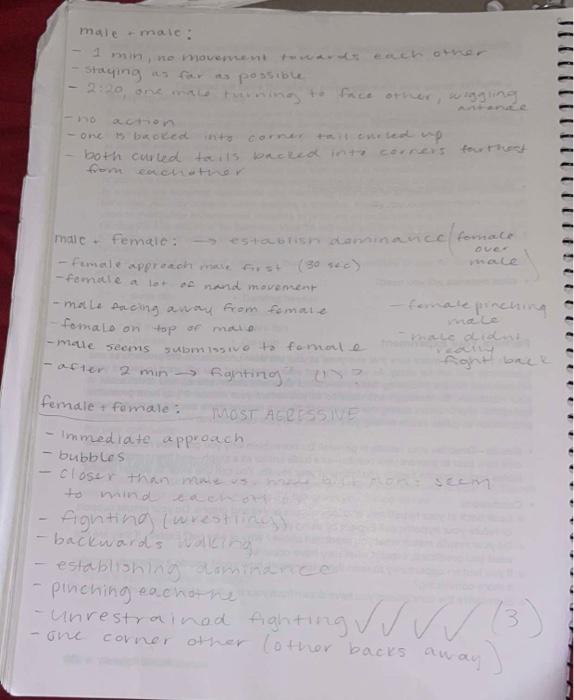 male + male:
- 1 min, no movement towards each other
- staying as far as possible
- 2:20, one male turning to face other, wiggling
antenae
- no action
- one is backed into corner tail curled up
- both curled tails backed into corners farthest
from eachother
male + female: → establish dominance (female
over
male)
- female approach male first (30 sec)
- female a lot of hand movement
- male facing away from female
- female pinching
male
- female on top of male
- male didnt
really
fight back
- male seems submissive to female
- after 2 min → fighting (1)?
female + female: MOST AGRESSIVE
- immediate approach
- bubbles
- closer than male vs. male but seem
to mind each other
- fighting (wrestling)
- backwards walking
- establishing dominance
- pinching eachothe
- unrestrained fighting ✓✓✓✓ (3)
- one corner other (other backs away)